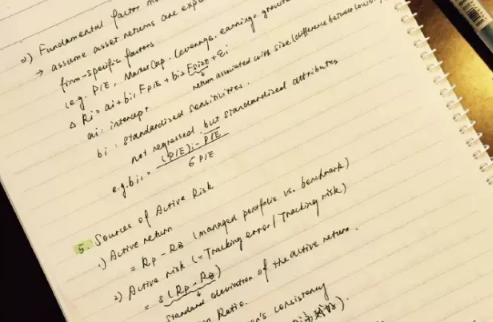 2) Fundamental factor mo
→ assume asset returns are exp
firm-specific factors
(e.g. P/E, Market Cap, leverage, earning growth
Δ Ri = ai + bi1 FP/E + bi2 Fsize + εi
return associated with size (difference between low
ai: intercept
bi: standardised sensitivities.
not regressed but standardised attributes
e.g. bi1 = (P/E)i - P/E
σ P/E
5. Sources of Active Risk
1) Active return
= RP - RB (managed portfolio vs. benchmark)
2) Active risk (= Tracking error / Tracking risk)
= s (RP - RB)
standard deviation of the active return.
Ratio.
's consistency